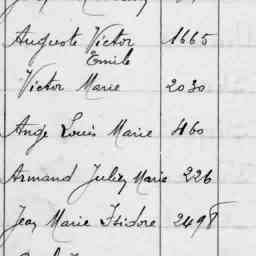 Auguste Victor 1665
Emile
Victor Marie 2030
Ange Louis Marie 460
Armand Julien Marie 226
Jean Marie Isidore 2498